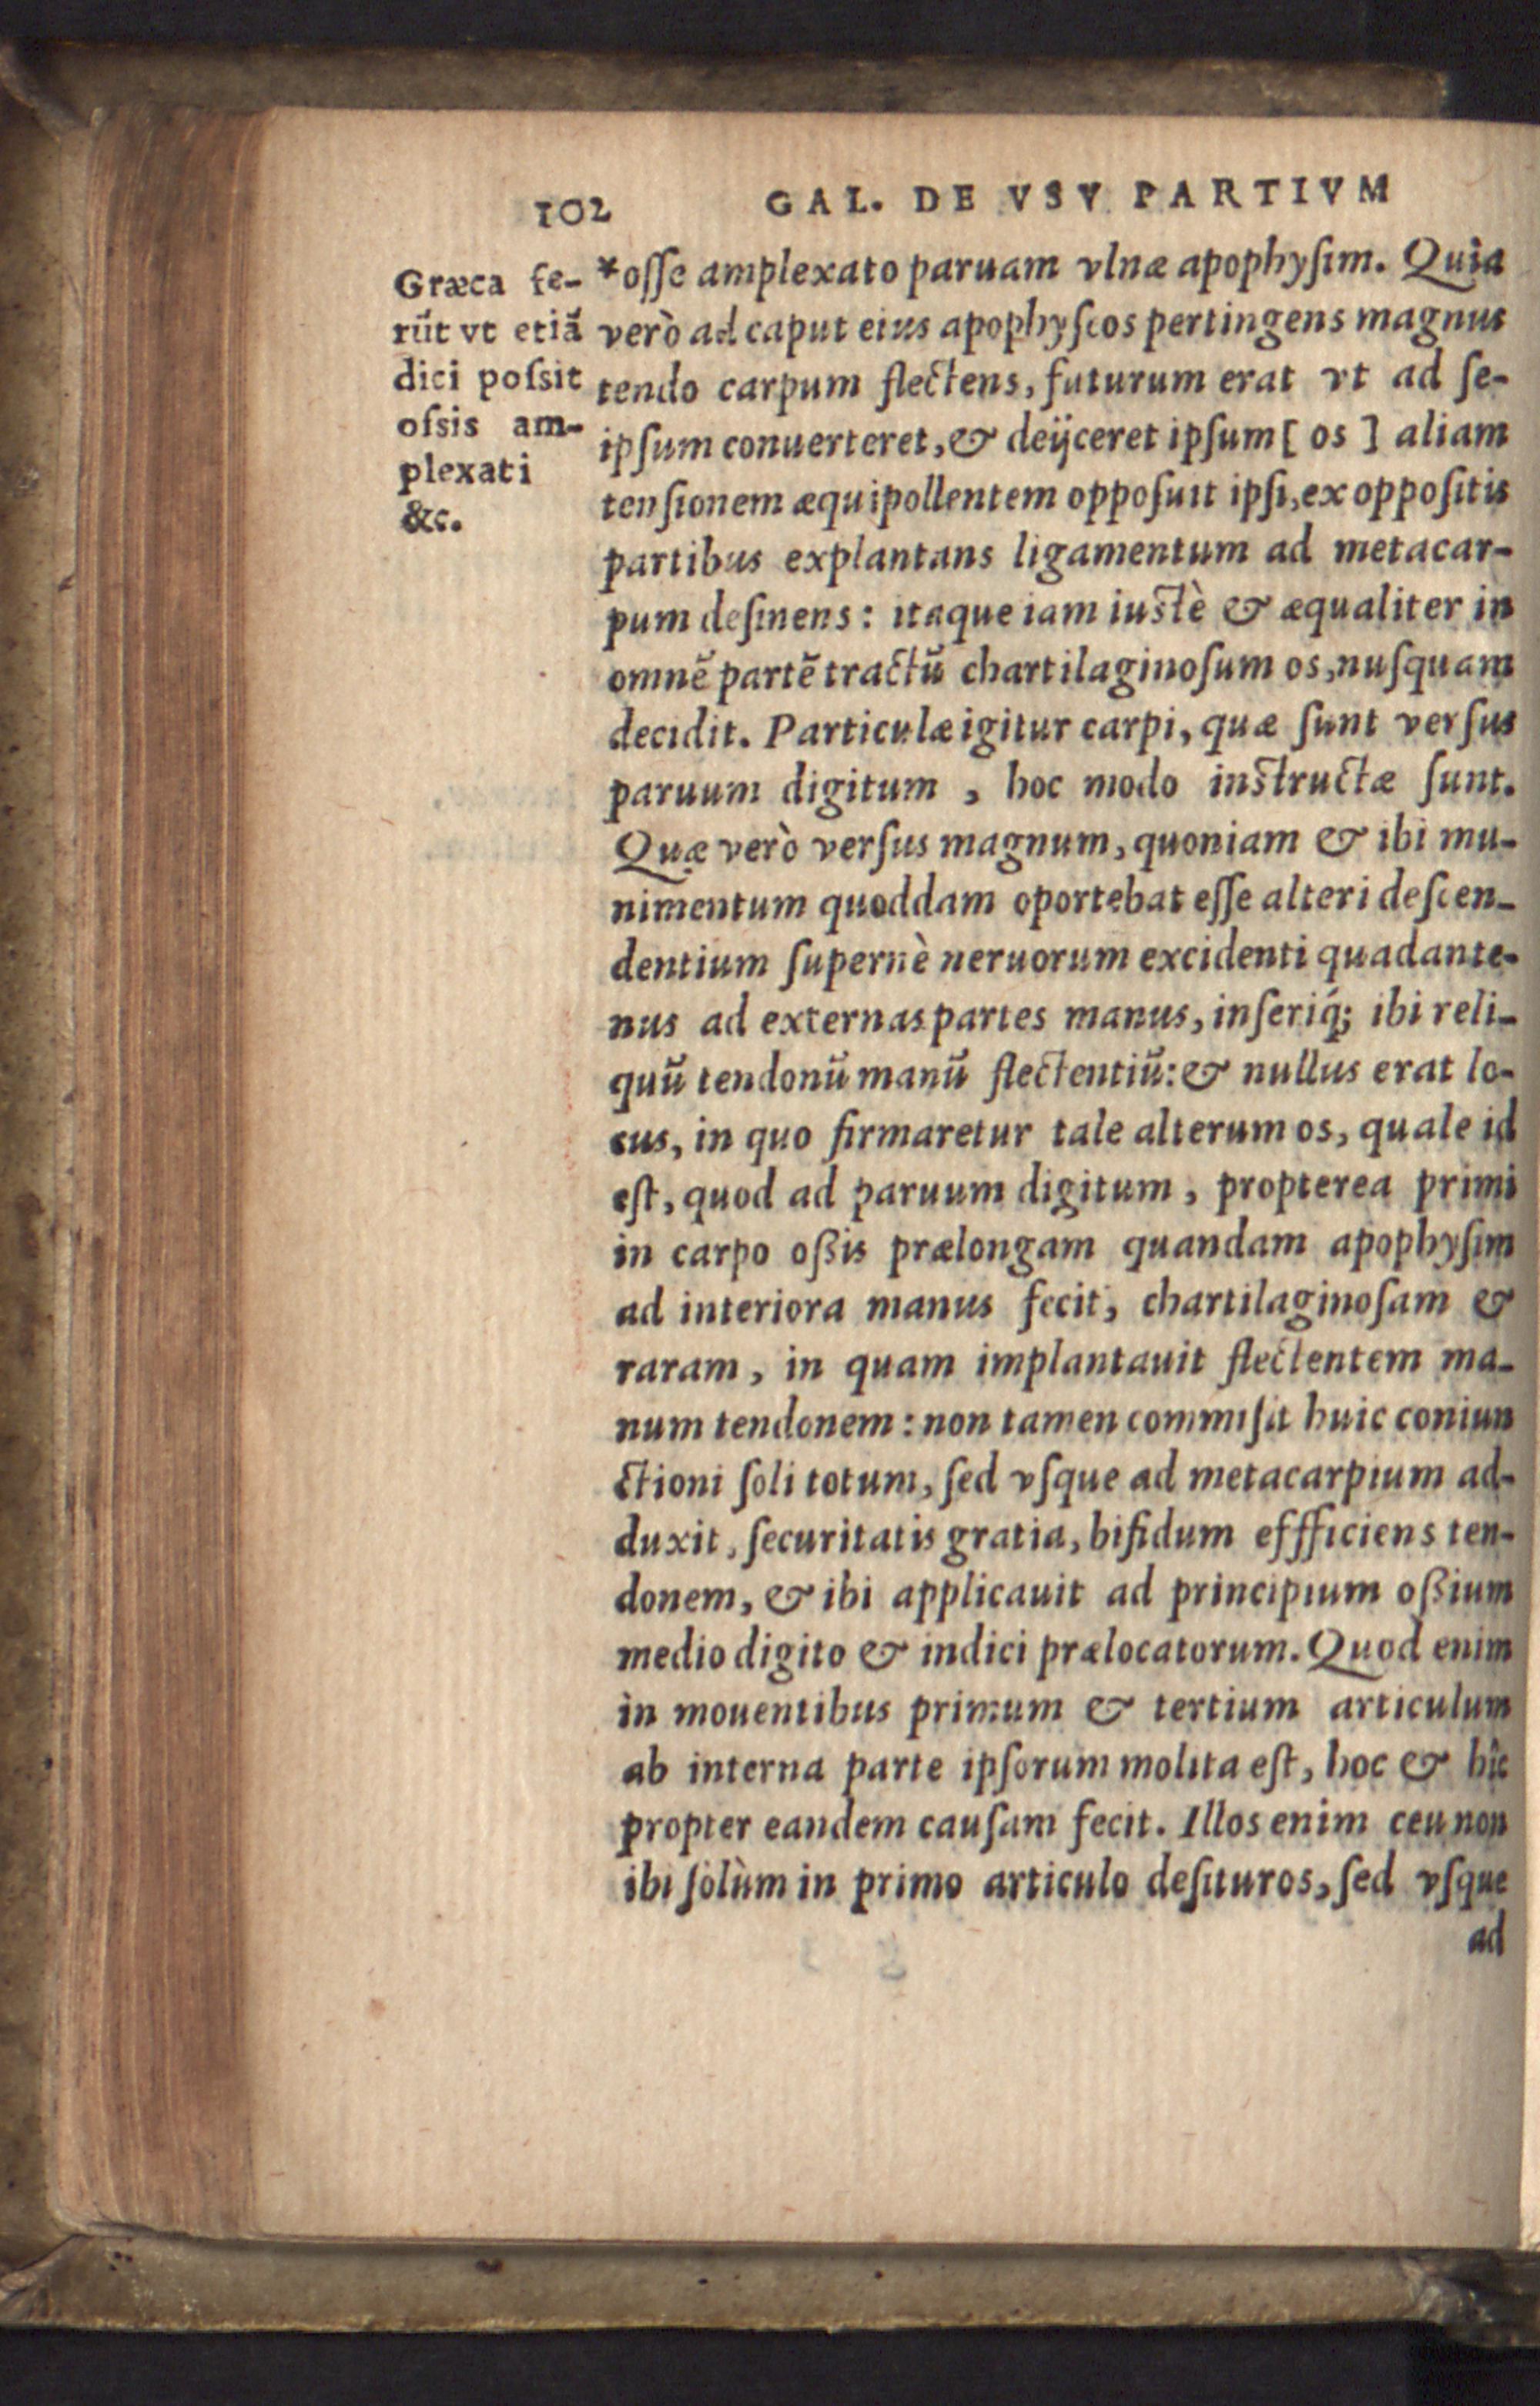 102 GAL. DE VSV PARTIVM
Græca fe-
rūt vt etiā
dici poſsit
oſsis am-
plexati
&c.
*oſſe amplexato paruam vlnæ apophyſim. Quia
verò ad caput eius apophyſeos pertingens magnus
tendo carpum flectens, futurum erat vt ad ſe-
ipſum conuerteret, & deijceret ipſum [ os ] aliam
tenſionem æquipollentem oppoſuit ipſi, ex oppoſitis
partibus explantans ligamentum ad metacar-
pum deſinens: itaque iam iustè & æqualiter in
omnē partē tractū chartilaginoſum os, nuſquam
decidit. Particulæ igitur carpi, quæ ſunt verſus
paruum digitum , hoc modo instructæ ſunt.
Quæ verò verſus magnum, quoniam & ibi mu-
nimentum quoddam oportebat eſſe alteri deſcen-
dentium ſupernè neruorum excidenti quadante-
nus ad externas partes manus, inſeriq́; ibi reli-
quū tendonū manū flectentiū: & nullus erat lo-
cus, in quo firmaretur tale alterum os, quale id
eſt, quod ad paruum digitum , propterea primi
in carpo oßis prælongam quandam apophyſim
ad interiora manus fecit, chartilaginoſam &
raram , in quam implantauit flectentem ma-
num tendonem : non tamen commiſit huic coniun
ctioni ſoli totum, ſed vſque ad metacarpium ad-
duxit, ſecuritatis gratia, bifidum effficiens ten-
donem, & ibi applicauit ad principium oßium
medio digito & indici prælocatorum. Quod enim
in mouentibus primum & tertium articulum
ab interna parte ipſorum molita eſt, hoc & hîc
propter eandem cauſam fecit. Illos enim ceu non
ibi ſolùm in primo articulo deſituros, ſed vſque
ad